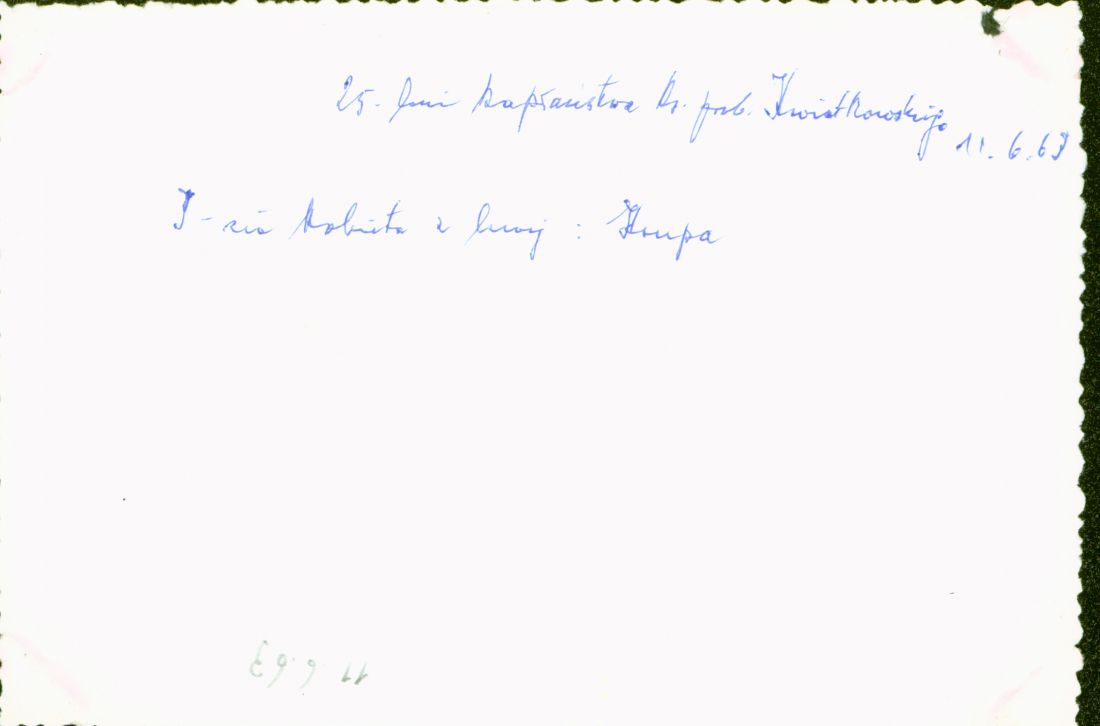 25-lecie kapłaństwa ks. prob. Kwiatkowskiego
11.6.63
I-sza kobieta z lewej : Krupa
11.6.63